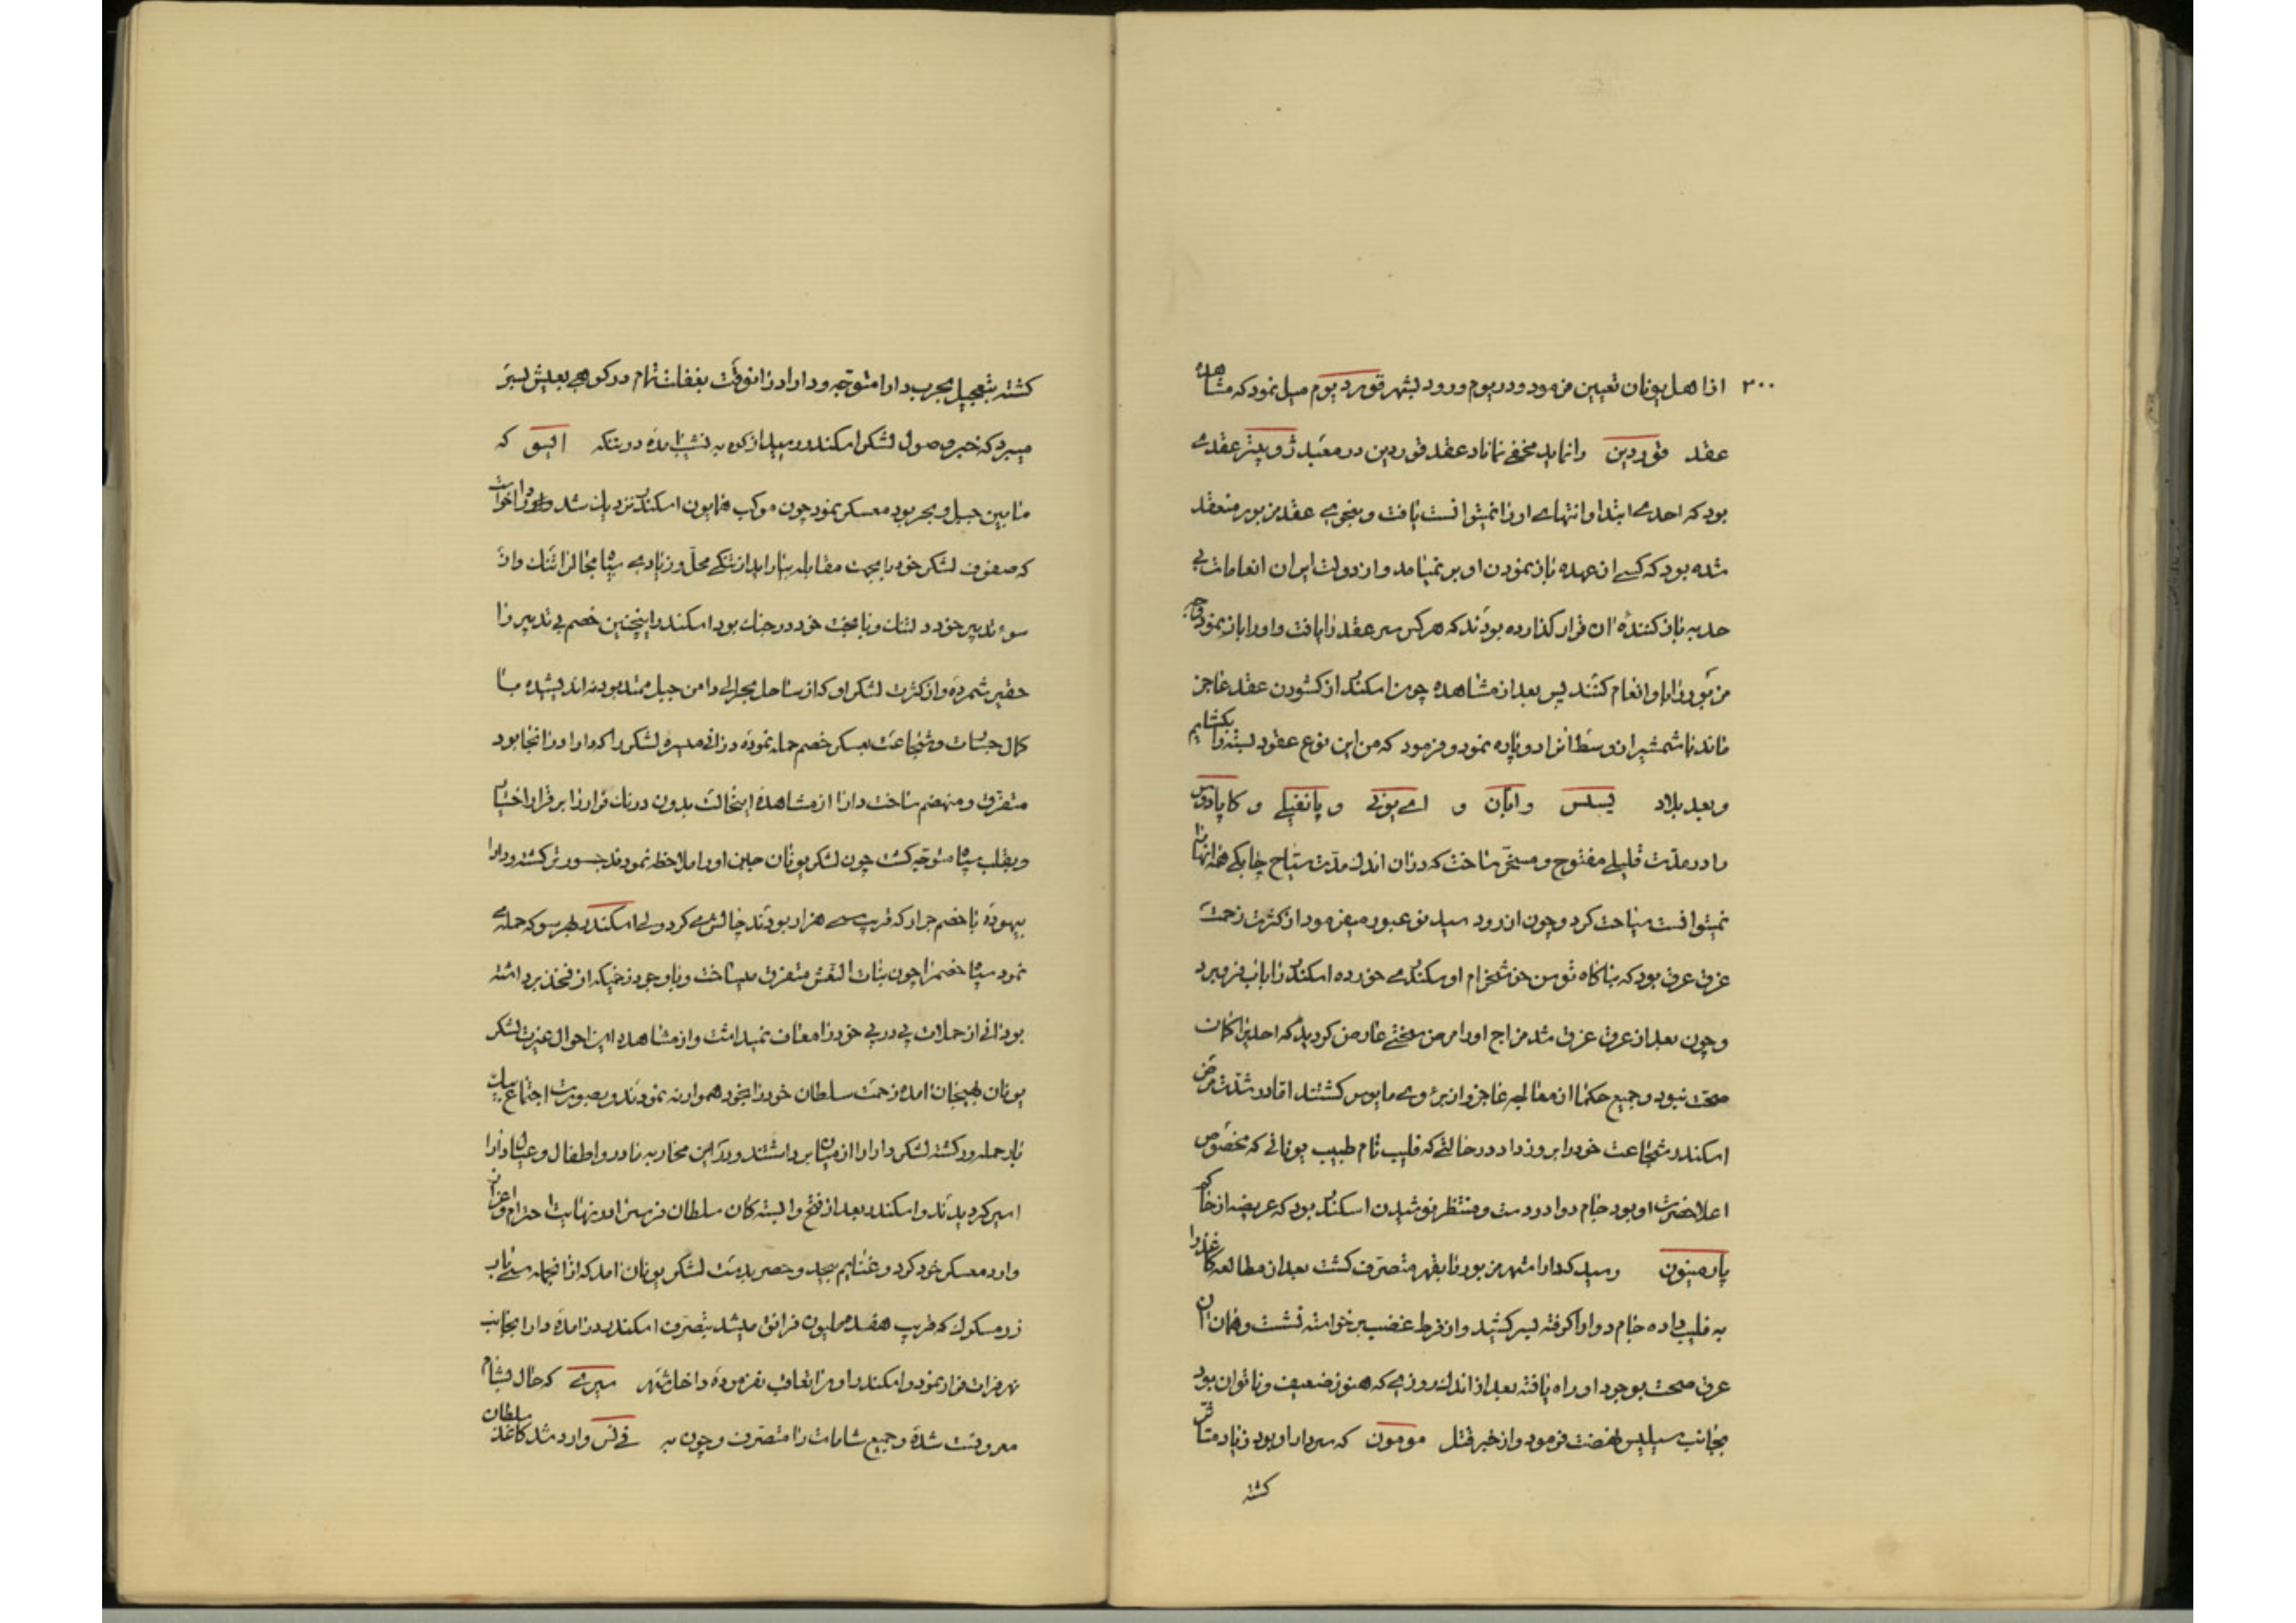 ۲۰۰
از اهل یونان تعیین فرمود و در یوم ورود بشهر قوردیوم میل نمود که مشاهده
عقد قوردین را نماید مخفی نماناد عقد قوردین در معبد ژوپیتر عقدی
بود که احدی ابتدا و انتهای او را نمیتوانست یافت و بنحوی عقد مزبور منعقد
شده بود که کسی از عهده باز نمودن او بر نمیامد و از دولت ایران انعامات بی
حد به باز کننده ان قرار گذارده بودند که هر کس سر عقد را یافت و او را باز نمود
مزبور را باو انعام کنند پس بعد از مشاهده چون اسکندر از گشودن عقد عاجز
ماند با شمشیر از وسط انرا دو پاره نمود و فرمود که من این نوع عقود بسته را بگشایم
و بعد بلاد یسلس و ایان و امی یونی و پانفیلی و کاپادوس
را در مدت قلیلی مفتوح و مسخر ساخت که در ان اندک مدت سیاح چابکی همه انها را
نمیتوانست سیاحت کرد و چون از رود سیدنو عبور میفرمود از کثرت زحمت
غرق عرق بود که بناگاه توسن خوشخرام او سکندری خورده اسکندر را باب فرو برد
و چون بعد از عرق غرق شد مزاج او را مرض سختی عارض گردید که احدیرا گمان
صحت نبود و جمیع حکما از معالجه عاجز و از برؤ وی مایوس گشتند اما در شدت مرض
اسکندر شجاعت خود را بروز داد در حالتی که فلیب نام طبیب یونانی که مخصوص
اعلاحضرت او بود جام دوا در دست و منتظر نوشیدن اسکندر بود که عریضه از حاکم
پارمینون رسید که دارا شهر مزبور را بقهر متصرف گشت بعد از مطالعه کاغذ را
به فلیب داده جام دوا را گرفته بسر کشید و از فرط غضب برخواسته نشست و همان ان
عرق صحت بوجود او راه یافته بعد از اندک روزی که هنوز ضعیف و ناتوان بود
بجانب سیلیس نهضت فرمود و از خبر قتل مومون که سردار او بود زیاد متاثر
گشته
گشته بتعجیل بحرب دارا متوجه و دارا در انوقت بغفلت تمام در کوهی بعیش بسر
میبرد که خبر وصول لشکر اسکندر رسید از کوه به نشیب امده در تنکه ایسق که
مابین جبل و بحر بود معسکر نمود چون موکب همایون اسکندر نزدیک شد دارا خواست
که صفوف لشکر خود را بجهت مقابله بیاراید از تنگی محل و زیادی سپاه مجالرا تنک و از
سوء تدبیر خود دلتنک و با بخت خود در جنک بود اسکندر اینچنین خصم بی تدبیر را
حقیر شمرده و از کثرت لشکر او که از ساحل بحر الی دامن جبل ممتد بود نه اندیشیده با
کمال جسارت و شجاعت بعسکر خصم حمله نموده در انی میسره لشکر را که دارا در انجا بود
متفرق و منهضم ساخت دارا از مشاهده اینحالت بدون درنک فرار را بر قرار اختیار
و بقلب سپاه متوجه گشت چون لشکر یونان جبن او را ملاحظه نمودند جسورتر گشته و دارا
بیهوده با خصم جرار که قریب سی هزار بودند چالش می کرد ولی اسکندر بهر سو که حمله می
نمود سپاه خصمرا چون بنات النعش متفرق میساخت و با وجود زخمیکه از فخذ برداشته
بود انی از حملات پی در پی خود را معاف نمیداشت و از مشاهده این احوال غیرت لشکر
یونان بهیجان امده زحمت سلطان خود را بخود هموار نه نمودند و بصورت اجتماع بیک
بار حمله ور گشته لشکر دارا را از میان برداشتند و در این محاربه مادر و اطفال و عیال دارا
اسیر گردیدند و اسکندر بعد از فتح وابسته کان سلطان فرس را در نهایت احترام و اعزاز
وارد معسکر خود کرد و غنایم بیحد و حصر بدست لشکر یونان امد که از انجمله سی باب
زر مسکوک که قریب هفصد میلیون فرانق میشد بتصرف اسکندر در امده دارا بجانب
نهر فرات فرار نمود و اسکندر او را تعاقب نفرموده داخل شهر سیری که حال بشام
معروفست شده و جمیع شامات را متصرف و چون به فی نس وارد شد کاغذ سلطان